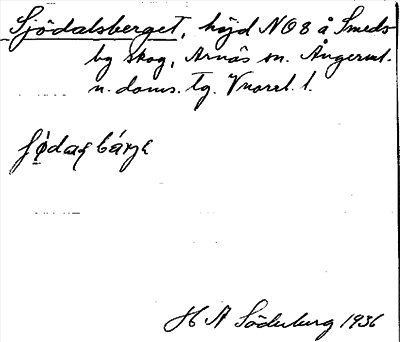 Sjödalsberget, höjd NO 8 å Smeds-
by skog, Arnäs sn. Ångerml.
n. doms. Tg. Vnorrl. l.
H A Söderberg 1936